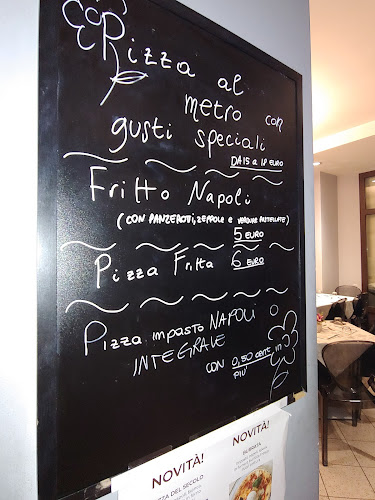 Pizza al
metro con
gusti speciali
DA 15 a 18 EURO
Fritto Napoli
(CON PANZEROTTI, ZEPPOLE E VERDURE PASTELLATE)
5 EURO
Pizza Fritta 6 EURO
Pizza impasto NAPOLI
INTEGRALE
CON 0,50 cent in
PIÙ
NOVITÀ!
NOVITÀ!
PIZZA DEL SECOLO